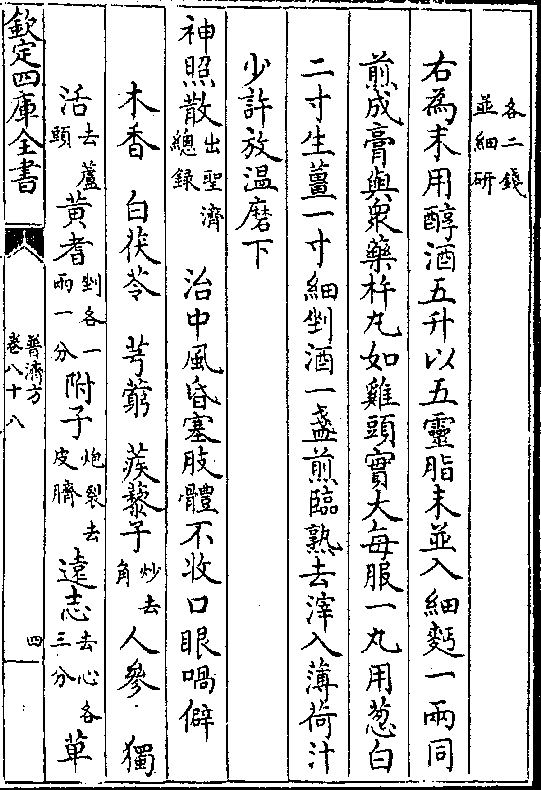 各二錢
並細研
右為末用醇酒五升以五靈脂末並入細麫一兩同
煎成膏與衆藥杵丸如雞頭實大每服一丸用葱白
二寸生薑一寸細剉酒一盞煎臨熟去滓入薄荷汁
少許放温磨下
神照散出聖濟總錄 治中風昏塞肢體不收口眼喎僻
木香 白茯苓 芎藭 蒺藜子炒去角 人參 獨
活去蘆頭 黄耆剉各一兩一分 附子炮裂去皮臍 逺志去心各三分 草
欽定四庫全書
普濟方
卷八十八
四